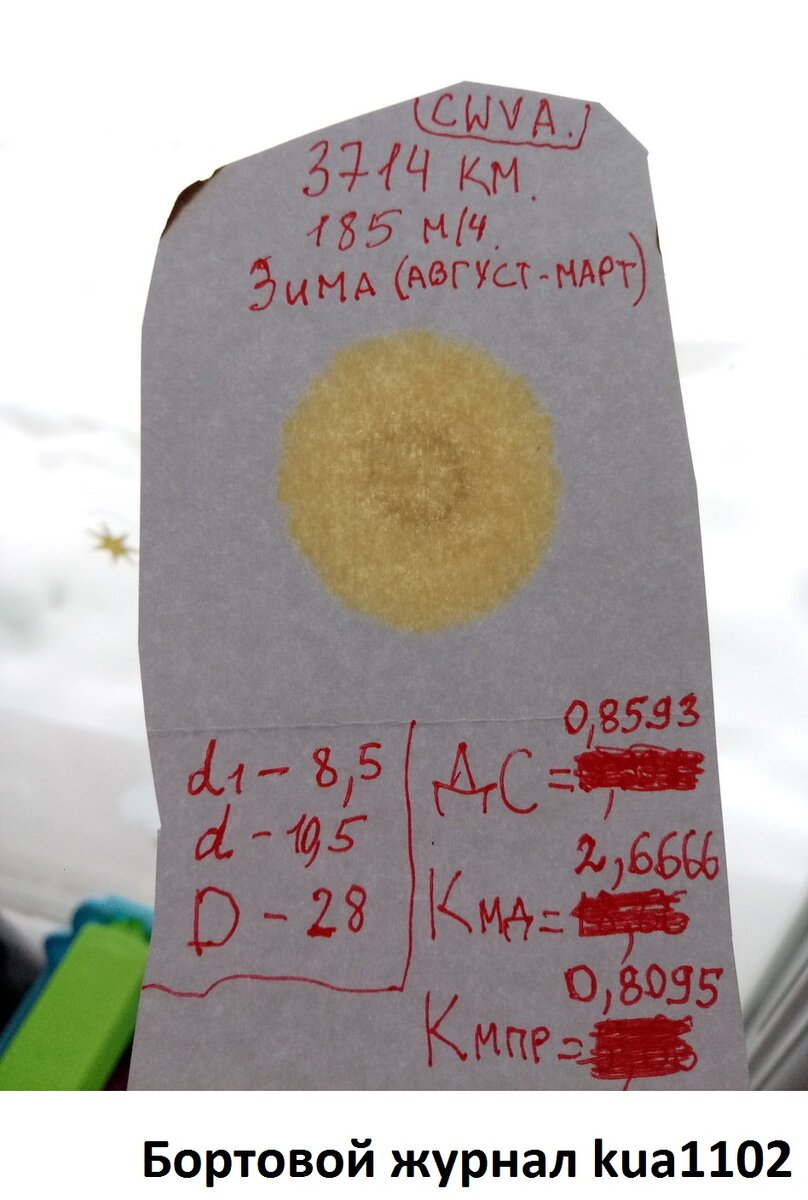 CWVA.
3714 КМ.
185 м/ч.
Зима (АВГУСТ-МАРТ)
d1 - 8,5
d - 10,5
D - 28
0,8593
ДС=
2,6666
Кмд=
0,8095
Кмпр=
Бортовой журнал kua1102